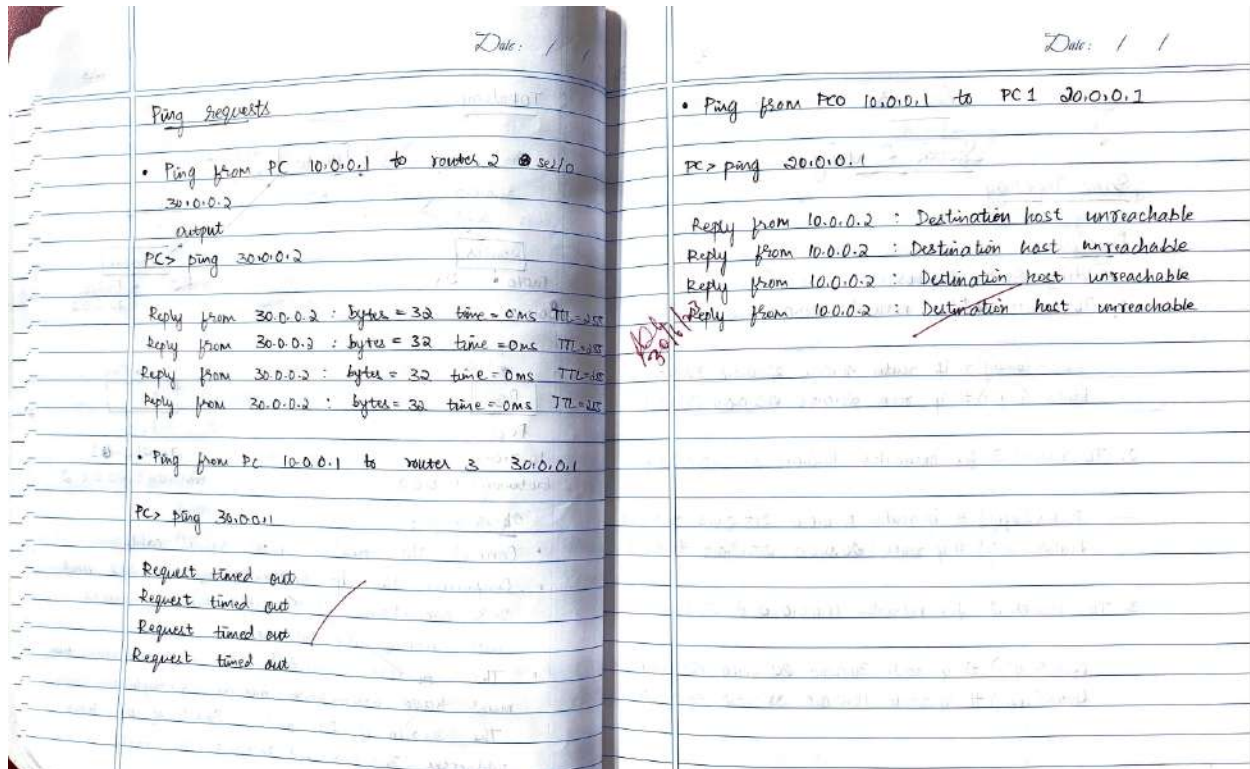 Date: / /
Ping requests
• Ping from PC 10.0.0.1 to router 2 se2/0
30.0.0.2
output
PC> ping 30.0.0.2
Reply from 30.0.0.2 : bytes = 32 time = 0ms TTL=255
Reply from 30.0.0.2 : bytes = 32 time = 0ms TTL=255
Reply from 30.0.0.2 : bytes = 32 time = 0ms TTL=255
Reply from 30.0.0.2 : bytes = 32 time = 0ms TTL=255
• Ping from PC 10.0.0.1 to router 3 30.0.0.1
PC> ping 30.0.0.1
Request timed out
Request timed out
Request timed out
Request timed out
Date: / /
• Ping from PC0 10.0.0.1 to PC 1 20.0.0.1
PC> ping 20.0.0.1
Reply from 10.0.0.2 : Destination host unreachable
Reply from 10.0.0.2 : Destination host unreachable
Reply from 10.0.0.2 : Destination host unreachable
Reply from 10.0.0.2 : Destination host unreachable